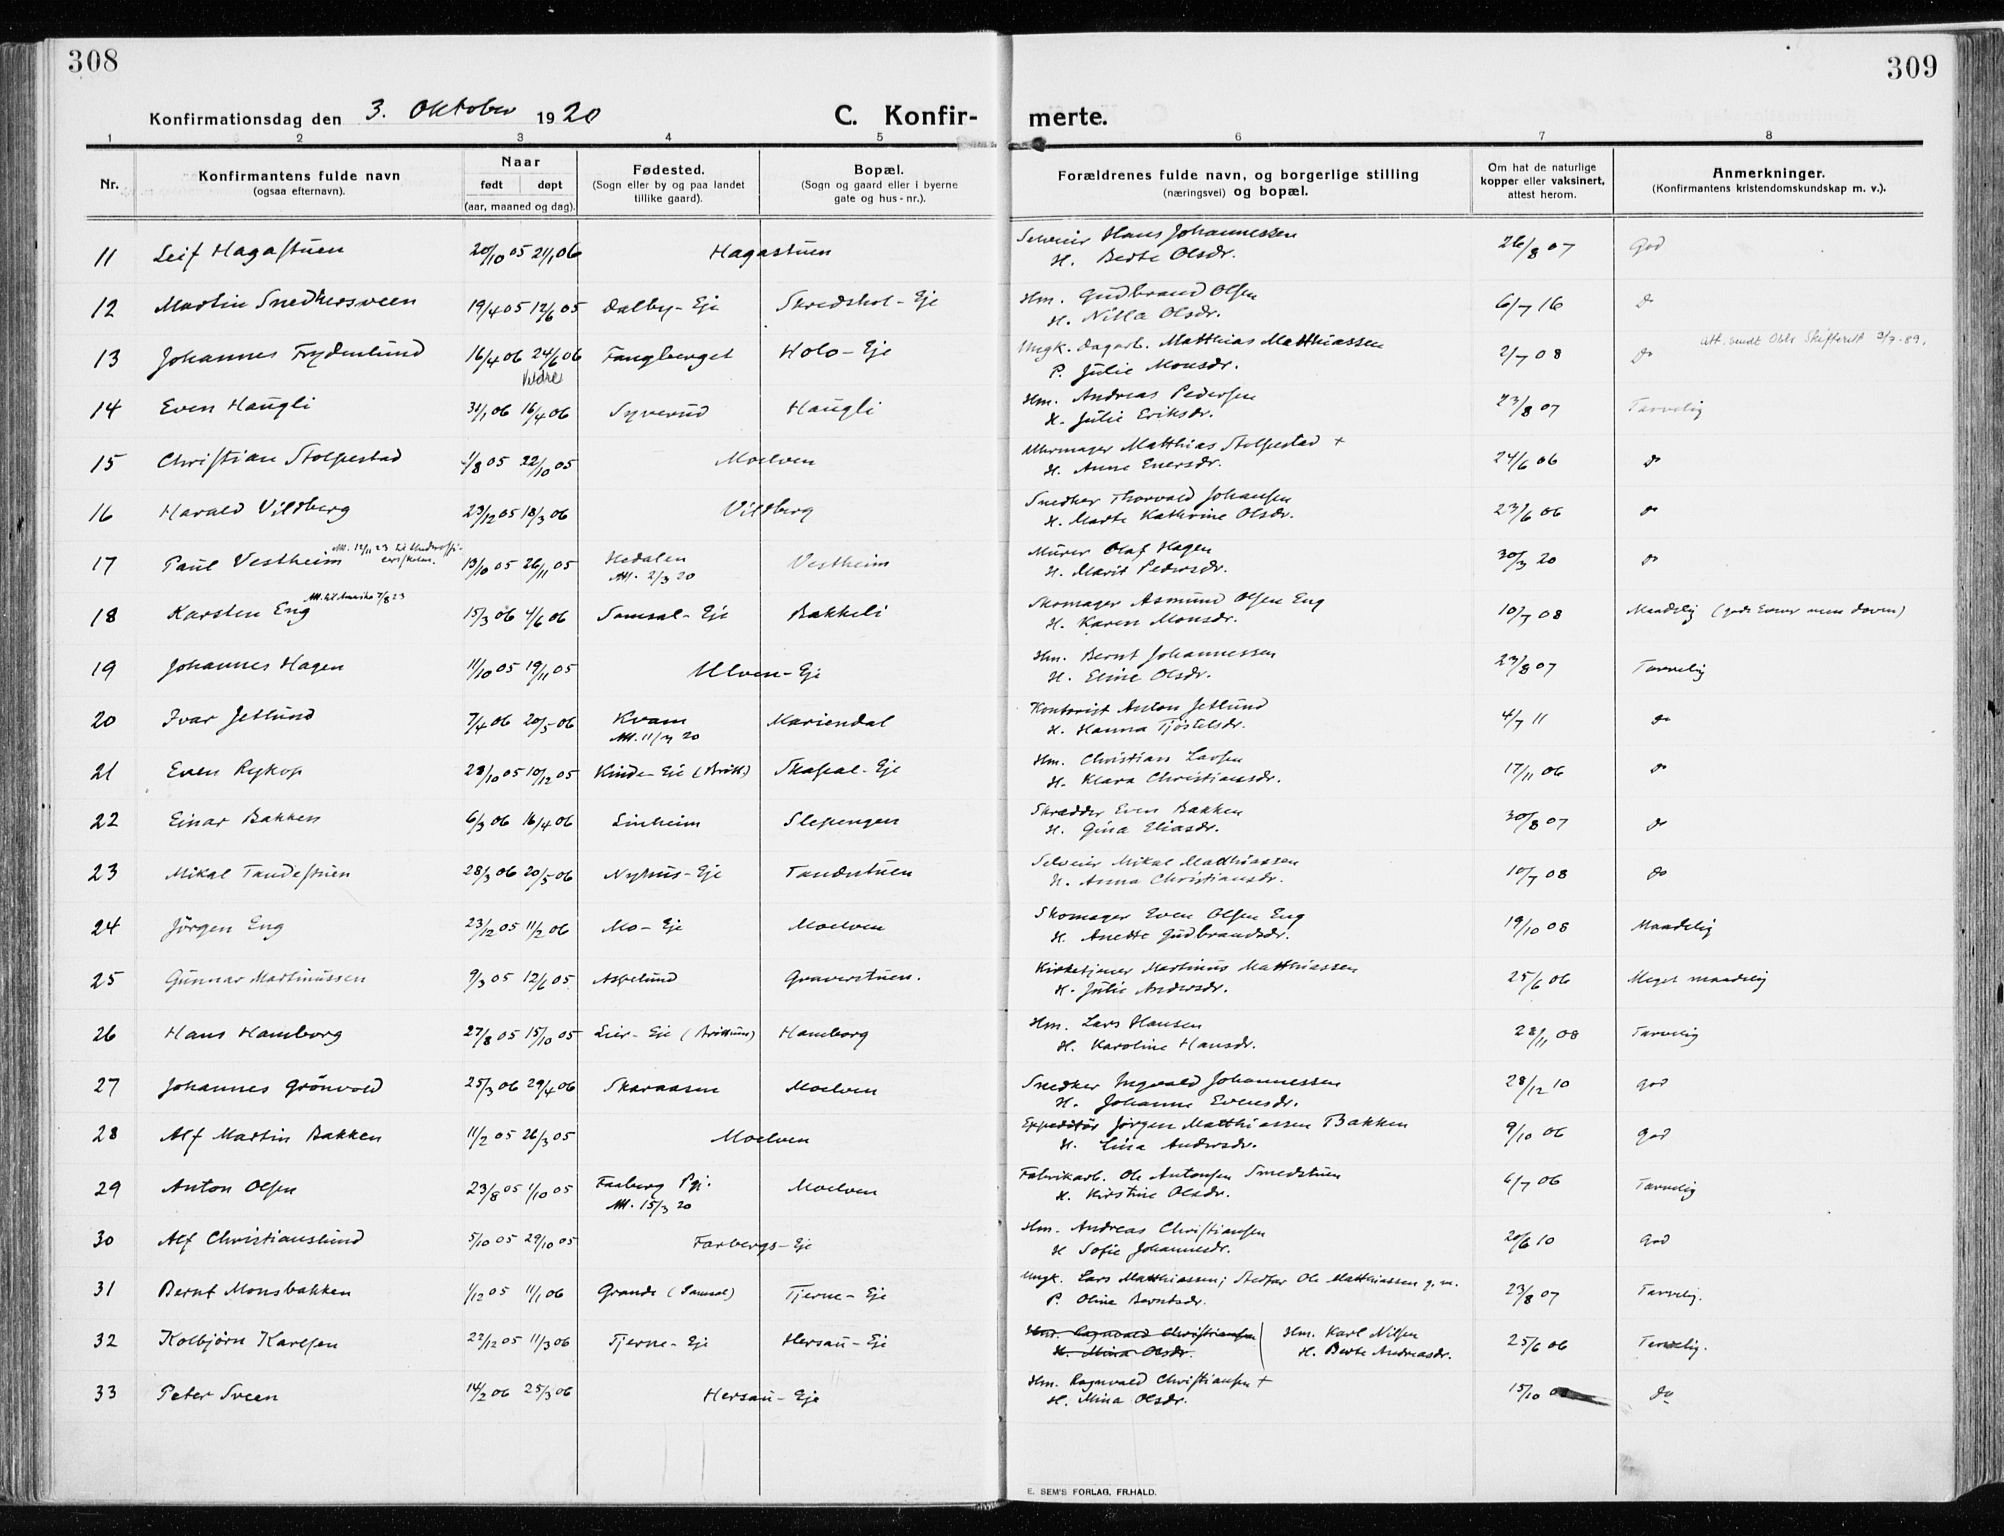 308
309
Konfirmationsdag den 3. Oktober 1920
C. Konfir-
merte.
1 2 3 4 5 6 7 8
Nr.
Konfirmantens fulde navn
(ogsaa efternavn).
Naar
født døpt
(aar, maaned og dag).
Fødested.
(Sogn eller by og paa landet
tillike gaard).
Bopæl.
(Sogn og gaard eller i byerne
gate og hus-nr.).
Forældrenes fulde navn, og borgerlige stilling
(næringsvei) og bopæl.
Om hat de naturlige
kopper eller vaksinert,
attest herom.
Anmerkninger.
(Konfirmantens kristendomskundskap m. v.).
11 Leif Hagastuen 20/10 05 21/1 06 Hagastuen Selveier Hans Johannessen 26/8 07 God
H. Berte Olsdr.
12 Martin Snedkersveen 19/4 05 12/6 05 Dalby-Eje Skredshol-Eje Hm. Gudbrand Olsen 6/7 16 Do
H. Nilla Olsdr.
13 Johannes Frydenlund 16/4 06 24/6 06 Fangberget Holo-Eje Ungk. Dagarb. Matthias Matthiassen 2/7 08 Do Att. sendt Oslo Skifterett 3/7-89.
Veldre P. Julie Monsdr.
14 Even Haugli 31/1 06 16/4 06 Syverud Haugli Hm. Andreas Pedersen 23/8 07 Tarvelig
H. Julie Eriksdr.
15 Christian Stolpestad 1/8 05 22/10 05 Moelven Uhrmager Matthias Stolpestad + 24/6 06 Do
H. Anne Enersdr.
16 Harald Vildberg 23/12 05 18/3 06 Vildberg Snedker Thorvald Johansen 23/6 06 Do
H. Marte Kathrine Olsdr.
Att. 12/11 23 til Underoffi-
cersskolen.
17 Paul Vestheim 13/10 05 26/11 05 Hedalen Vestheim Murer Olaf Hagen 30/3 20 Do
Att. 2/3 20 H. Marit Pedersdr.
Att. til Amerika 7/8 23
18 Karsten Eng 15/3 06 4/6 06 Samsal-Eje Bakkeli Skomager Asmund Olsen Eng 10/7 08 Maadelig (gode Evner men doven)
H. Karen Monsdr.
19 Johannes Hagen 11/10 05 19/11 05 Ulven-Eje Hm. Bernt Johannessen 23/8 07 Tarvelig
H. Eline Olsdr.
20 Ivar Jetlund 7/4 06 20/5 06 Kvam Mariendal Kontorist Anton Jetlund 4/7 11 Do
Att. 11/3 20 H. Hanna Tjöstelsdr.
21 Even Rykop 28/10 05 10/12 05 Kinde-Eie (Brött.) Skapal-Eje Hm. Christian Larsen 17/11 06 Do
H. Klara Christiansdr.
22 Einar Bakken 6/3 06 16/4 06 Linheim Slepengen Skredder Even Bakken 30/8 07 Do
H. Gina Eliasdr.
23 Mikal Tandestuen 28/3 06 20/5 06 Nyhus-Eje Tandestuen Selveier Mikal Matthiassen 10/7 08 Do
H. Anna Christiansdr.
24 Jörgen Eng 23/12 05 11/2 06 Mo-Eje Moelven Skomager Even Olsen Eng 19/10 08 Maadelig
H. Anette Gudbrandsdr.
25 Gunnar Martinussen 9/3 05 12/6 05 Aspelund Graverstuen. Kirketjener Martinus Matthiassen 25/6 06 Meget maadelig
H. Julie Andersdr.
26 Hans Hamborg 27/8 05 15/10 05 Lier-Eie (Bröttum) Hamborg Hm. Lars Hansen 28/11 08 Tarvelig
H. Karoline Hansdr.
27 Johannes Grönvold 25/3 06 29/4 06 Skaraasen Moelven Snedker Ingvald Johannessen 28/12 10 God
H. Johanne Evensdr.
28 Alf Martin Bakken 11/2 05 26/3 05 Moelven Expeditör Jörgen Matthiassen Bakken 9/10 06 God
H. Lina Andersdr.
29 Anton Olsen 23/8 05 1/10 05 Faaberg Pgj. Moelven Fabrikarb. Ole Antonsen Smedstuen 6/7 06 Tarvelig
Att. 15/3 20 H. Kirstine Olsdr.
30 Alf Christianslund 5/10 05 29/10 05 Farbergs-Eje Hm. Andreas Christiansen 20/6 10 God
H Sofie Johannesdr.
31 Bernt Monsbakken 1/12 05 11/1 06 Grande (Samsal) Tjerne-Eje Ungk. Lars Matthiassen; Stedfar Ole Matthiassen g. m. 23/8 07 Tarvelig.
P. Oline Berntsdr.
32 Kolbjörn Karlsen 22/12 05 11/3 06 Tjerne-Eje Hersau-Eje Hm. Ragnvald Christiansen Hm. Karl Nilsen 25/6 06 Tarvelig.
H. Mina Olsdr. H. Berte Andreasdr.
33 Peter Sveen 14/2 06 25/3 06 Hersau-Eje Hm. Ragnvald Christiansen + 15/10 Do
H. Mina Olsdr.
E. SEM'S FORLAG, FR.HALD.